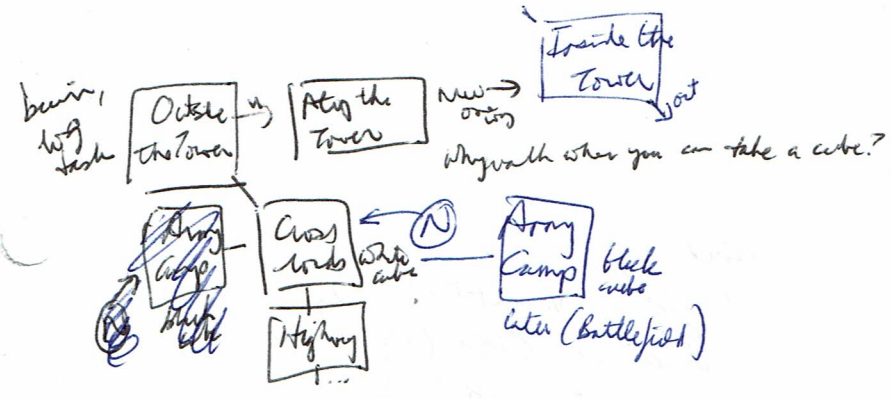 Inside the
Tower
out
Outside
the Tower
Atop the
Tower
one way
Why walk when you can take a cube?
Army
Camp
black
cube
N
Cross
roads
white
cube
N
Army
Camp
black
cube
later (Battlefield)
Highway
...